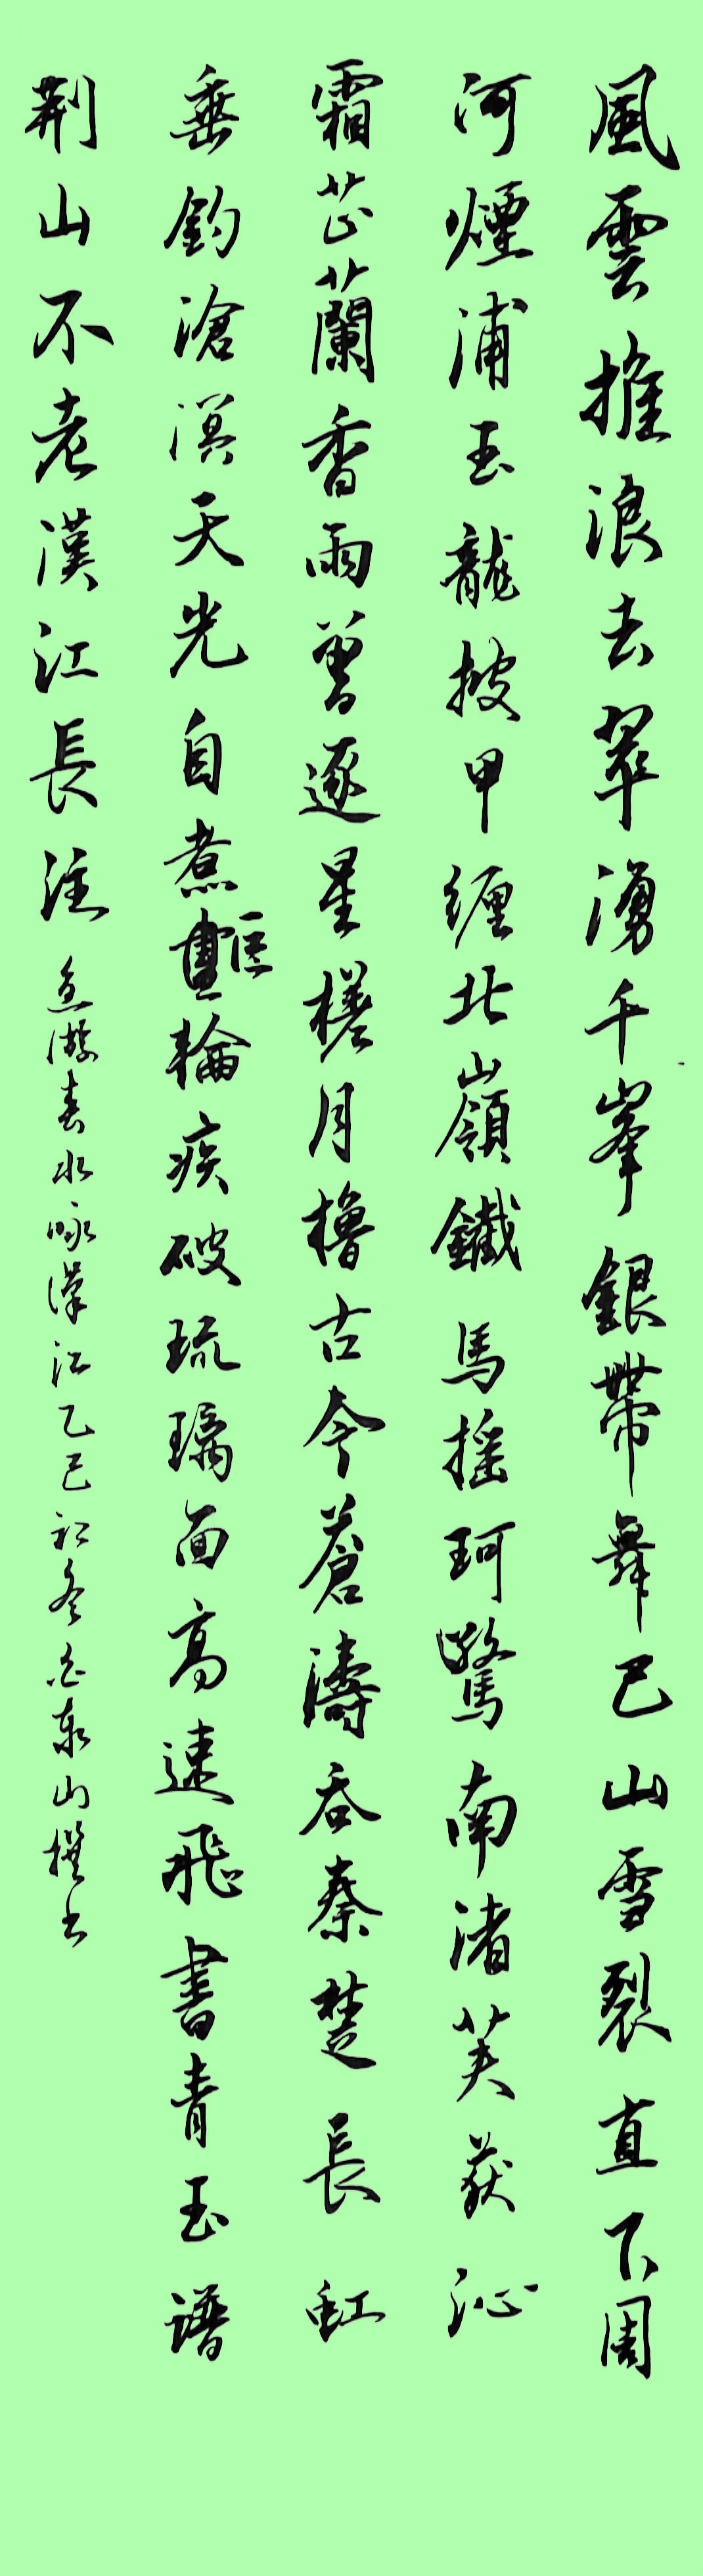 風雲推浪去翠湧千峯銀帶舞巴山雪裂直下周
河煙浦玉龍披甲纏北嶺鐵馬摇珂驚南渚芙荻沁
霜芷蘭香雨曾逐星槎月櫓古今蒼濤吞秦楚長虹
垂釣滄溟天光自煮鹽輪疾破琉璃面高速飛書青玉譜
荆山不老漢江長注 魚游春水咏漢江乙巳初冬白泉山撰书